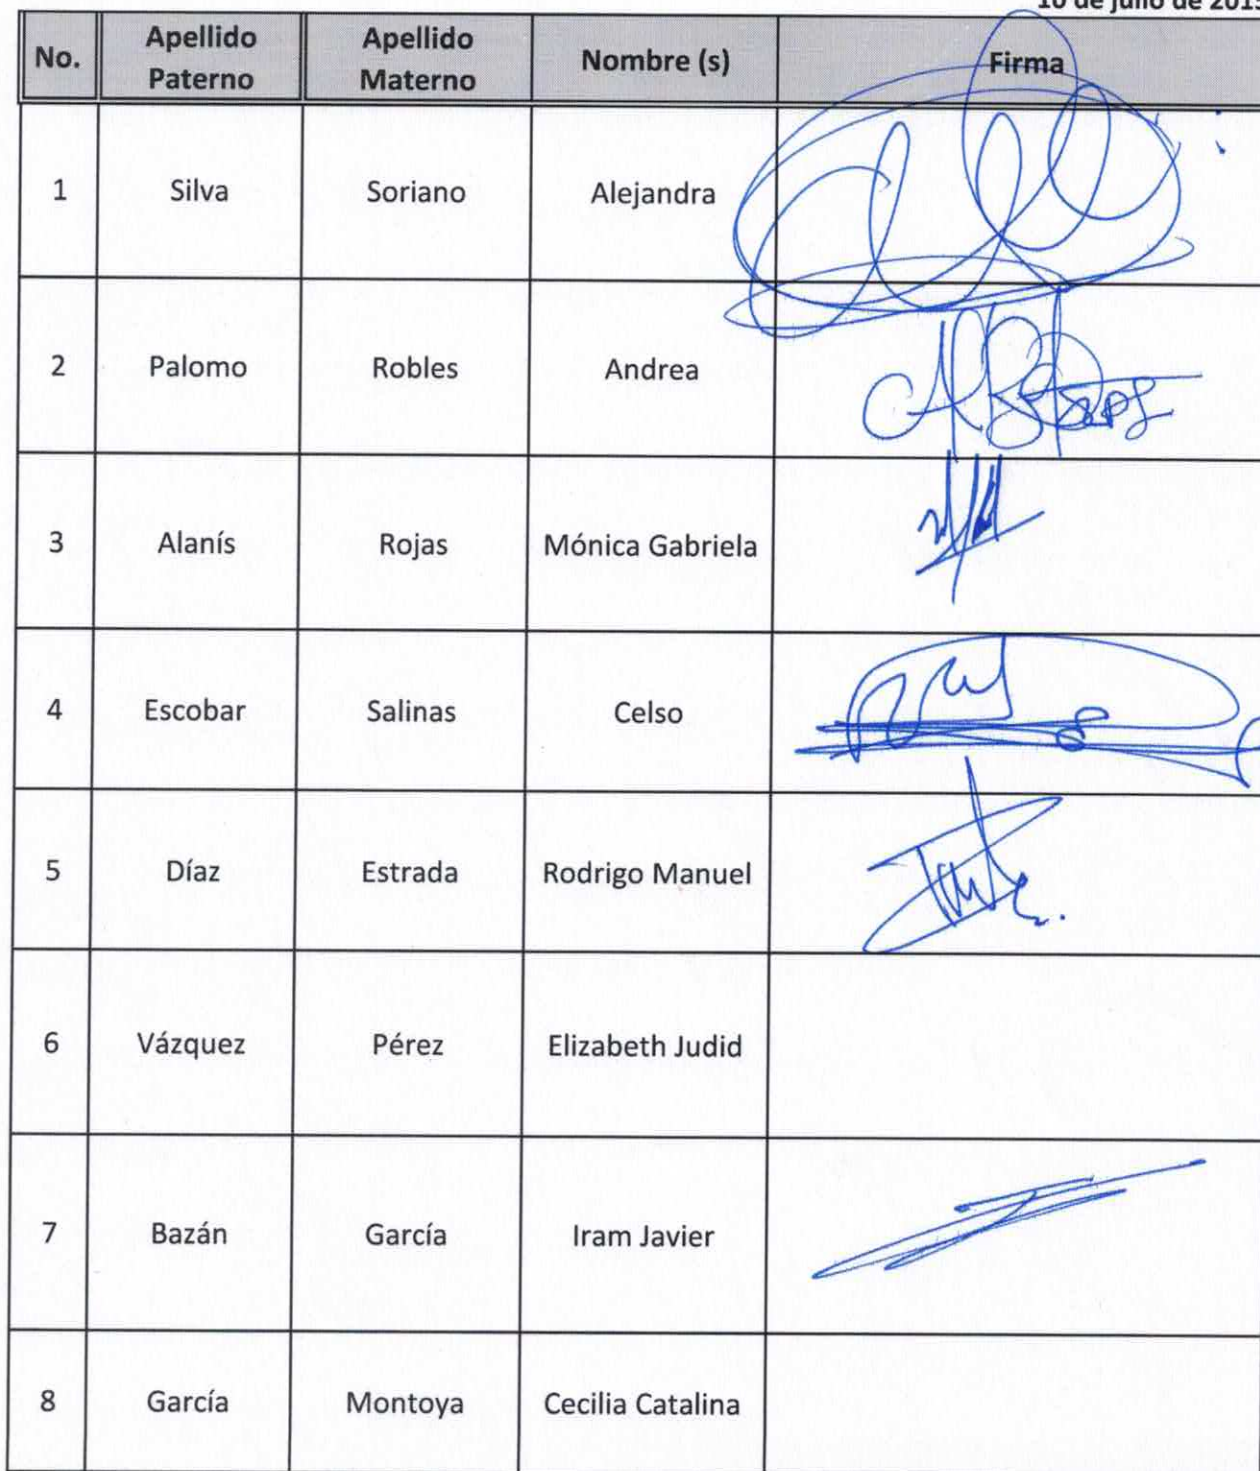 10 de julio de 2015
No. Apellido Paterno Apellido Materno Nombre (s) Firma
1 Silva Soriano Alejandra
2 Palomo Robles Andrea
3 Alanís Rojas Mónica Gabriela
4 Escobar Salinas Celso
5 Díaz Estrada Rodrigo Manuel
6 Vázquez Pérez Elizabeth Judid
7 Bazán García Iram Javier
8 García Montoya Cecilia Catalina